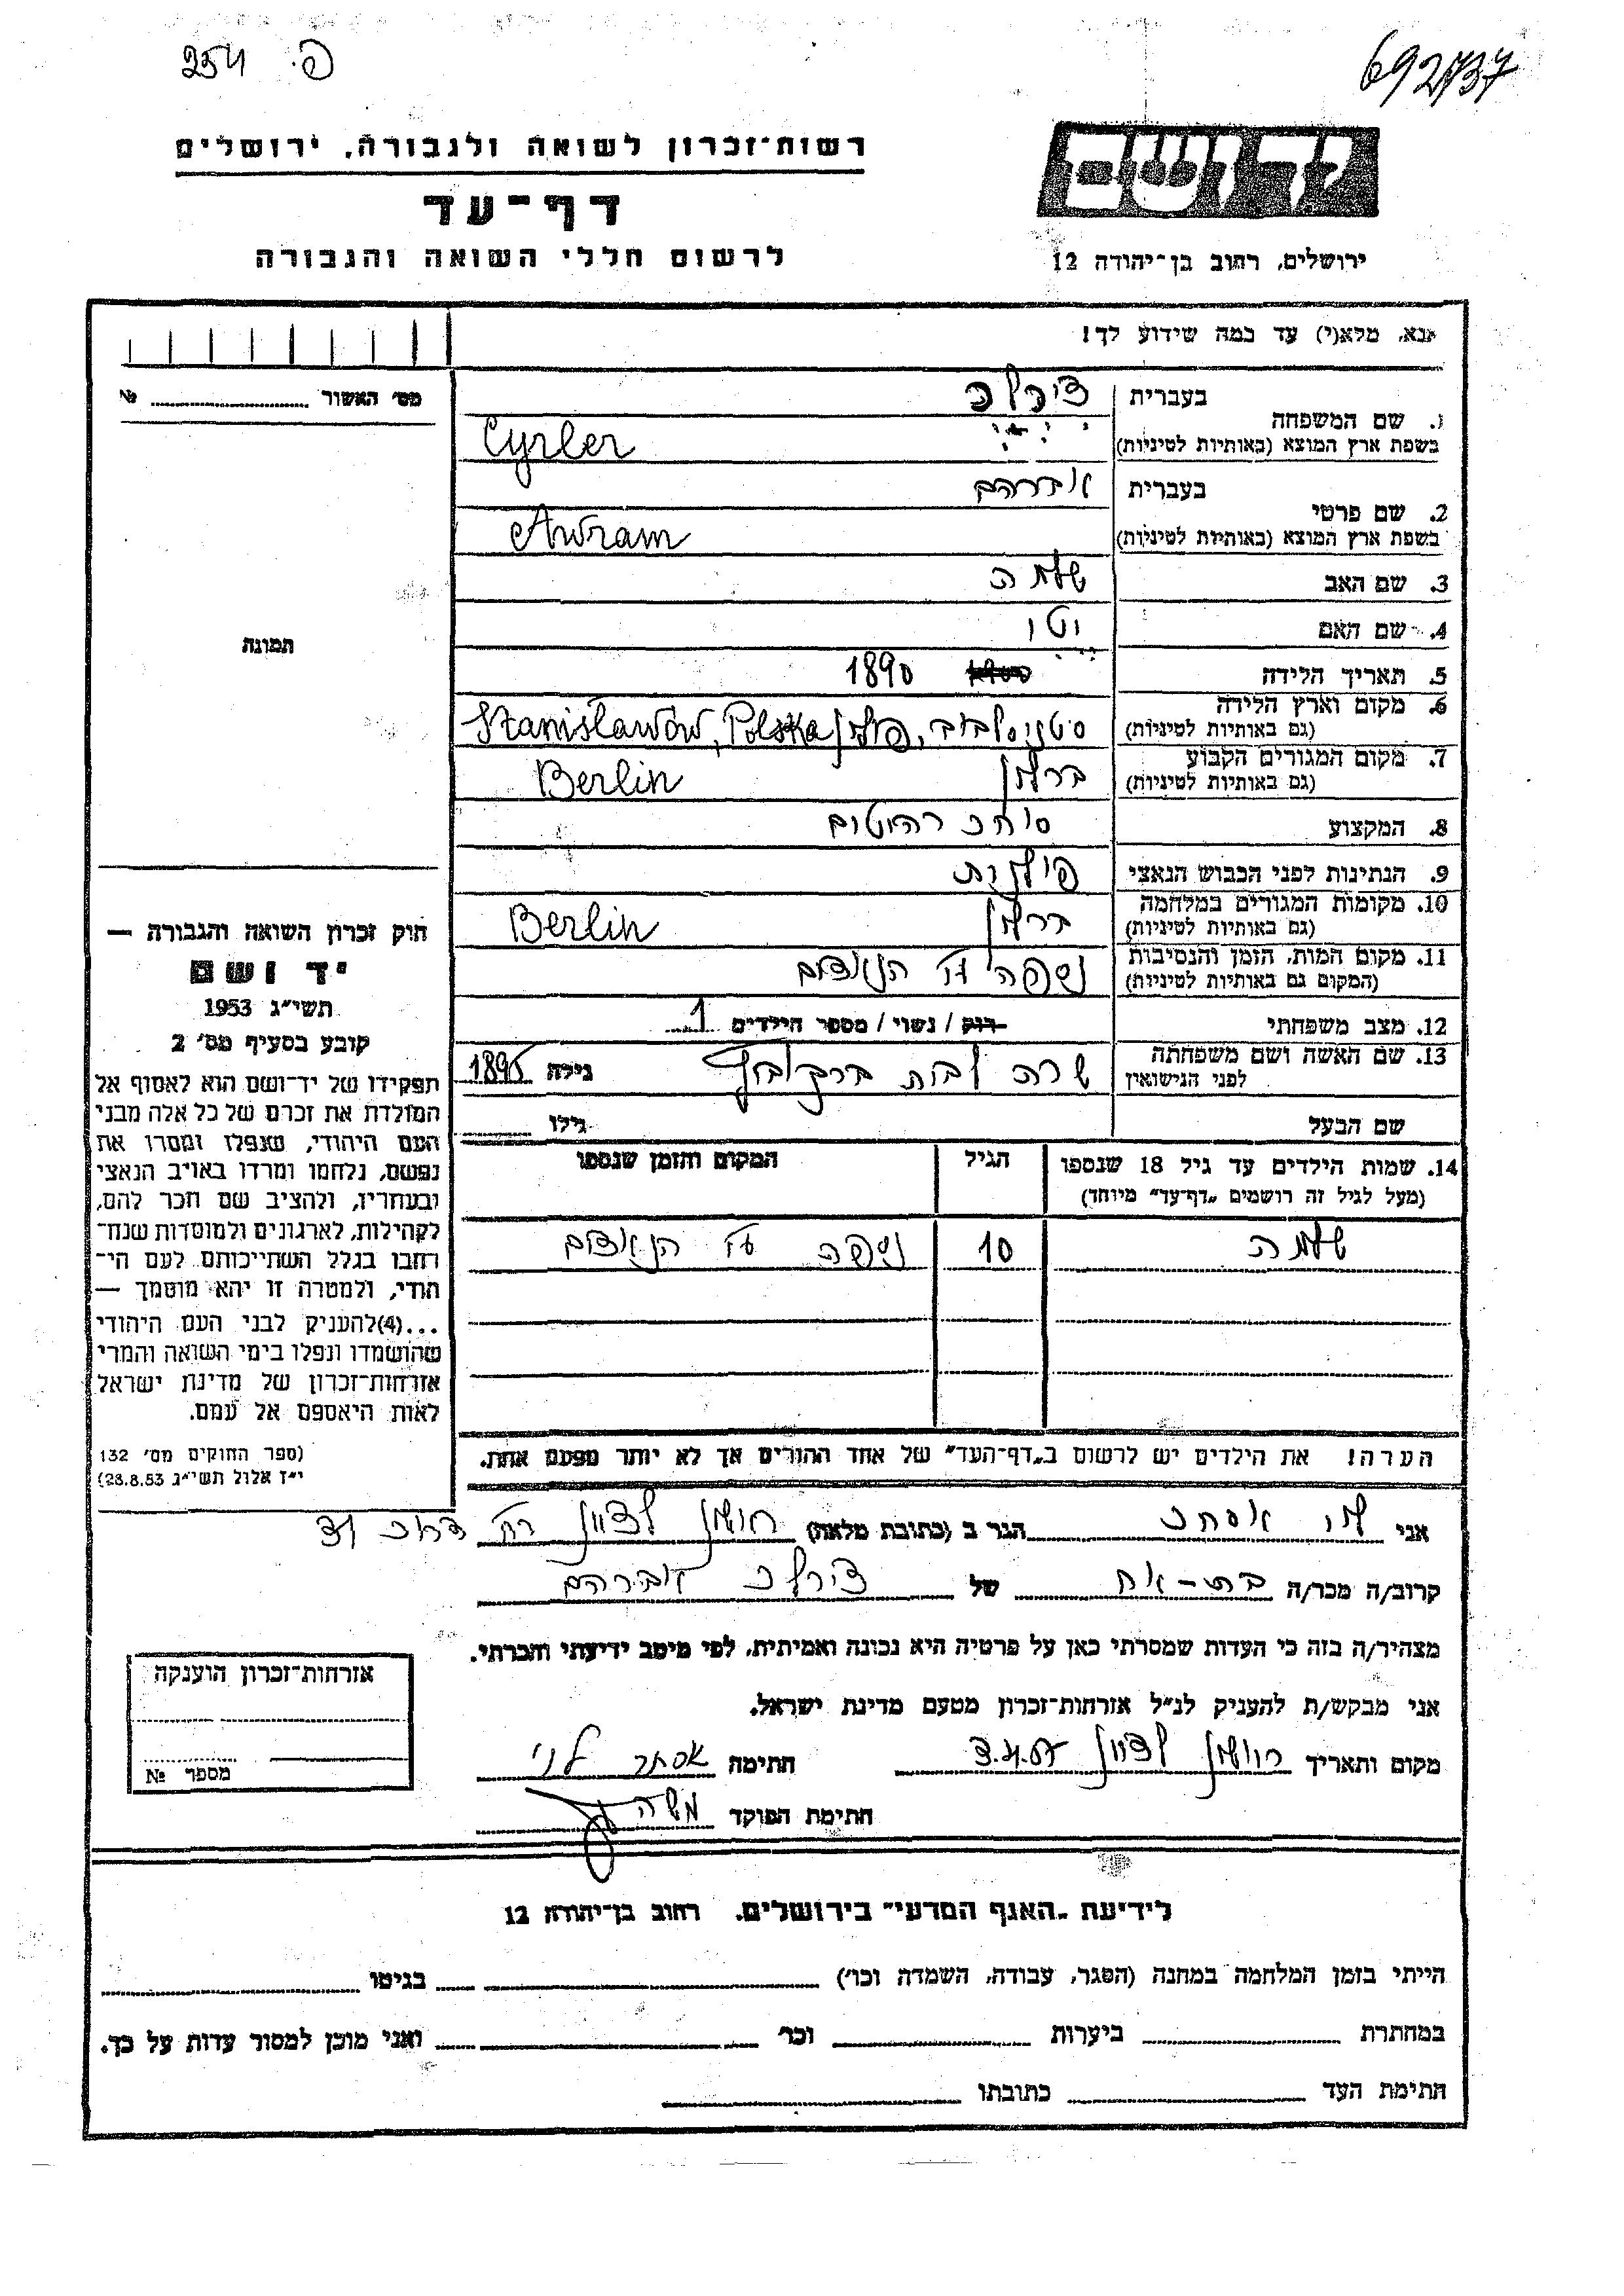 254 פ.
692737
יד ושם
רשות־זכרון לשואה ולגבורה, ירושלים
דף־עד
לרשום חללי השואה והגבורה
ירושלים, רחוב בן־יהודה 12
אנא, מלא(י) עד כמה שידוע לך!
מס׳ האשור № ........
1. שם המשפחה
בעברית צירלר
בשפת ארץ המוצא (באותיות לטיניות) Cyrler
2. שם פרטי
בעברית אברהם
בשפת ארץ המוצא (באותיות לטיניות) Awram
3. שם האב שלמה
4. שם האם יטי
5. תאריך הלידה 1890
6. מקום וארץ הלידה
(גם באותיות לטיניות) סטניסלבוב, פולין Stanisławów, Polska
7. מקום המגורים הקבוע
(גם באותיות לטיניות) ברלין Berlin
8. המקצוע סוחר רהיטים
9. הנתינות לפני הכבוש הנאצי פולנית
10. מקומות המגורים במלחמה
(גם באותיות לטיניות) ברלין Berlin
11. מקום המות, הזמן והנסיבות
(המקום גם באותיות לטיניות) נספה ע״י הנאצים
12. מצב משפחתי רוק / נשוי / מספר הילדים 1
13. שם האשה ושם משפחתה
לפני הנישואין שרה לבית גילה
שם הבעל גילו ........
14. שמות הילדים עד גיל 18 שנספו
(מעל לגיל זה רושמים „דף־עד״ מיוחד)
הגיל
המקום והזמן שנספו
שלמה 10 נספה ע״י הנאצים
הערה! את הילדים יש לרשום ב„דף־העד״ של אחד ההורים אך לא יותר מפעם אחת.
תמונה
חוק זכרון השואה והגבורה —
יד ושם
תשי״ג 1953
קובע בסעיף מס׳ 2
תפקידו של יד־ושם הוא לאסוף אל
המולדת את זכרם של כל אלה מבני
העם היהודי, שנפלו ומסרו את
נפשם, נלחמו ומרדו באויב הנאצי
ובעוזריו, ולהציב שם וזכר להם,
לקהילות, לארגונים ולמוסדות שנח־
רבו בגלל השתייכותם לעם הי־
הודי, ולמטרה זו יהא מוסמך —
...(4)להעניק לבני העם היהודי
שהושמדו ונפלו בימי השואה והמרי
אזרחות־זכרון של מדינת ישראל
לאות היאספם אל עמם.
(ספר החוקים מס׳ 132
י״ז אלול תשי״ג 28.8.53)
אני לוי אסתר הגר ב (כתובת מלאה) ראשון לציון רח׳
קרוב/ה מכר/ה בת-אח של צירלר אברהם
מצהיר/ה בזה כי העדות שמסרתי כאן על פרטיה היא נכונה ואמיתית, לפי מיטב ידיעתי והכרתי.
אני מבקש/ת להעניק לנ״ל אזרחות־זכרון מטעם מדינת ישראל.
מקום ותאריך ראשון לציון חתימה אסתר לוי
חתימת הפוקד משה
אזרחות־זכרון הוענקה
מספר №
לידיעת „האגף המדעי״ בירושלים, רחוב בן־יהודה 12
הייתי בזמן המלחמה במחנה (הסגר, עבודה, השמדה וכו׳) ........ בגיטו ........
במחתרת ........ ביערות ........ וכו׳ ........ ואני מוכן למסור עדות על כך.
חתימת העד ........ כתובתו ........